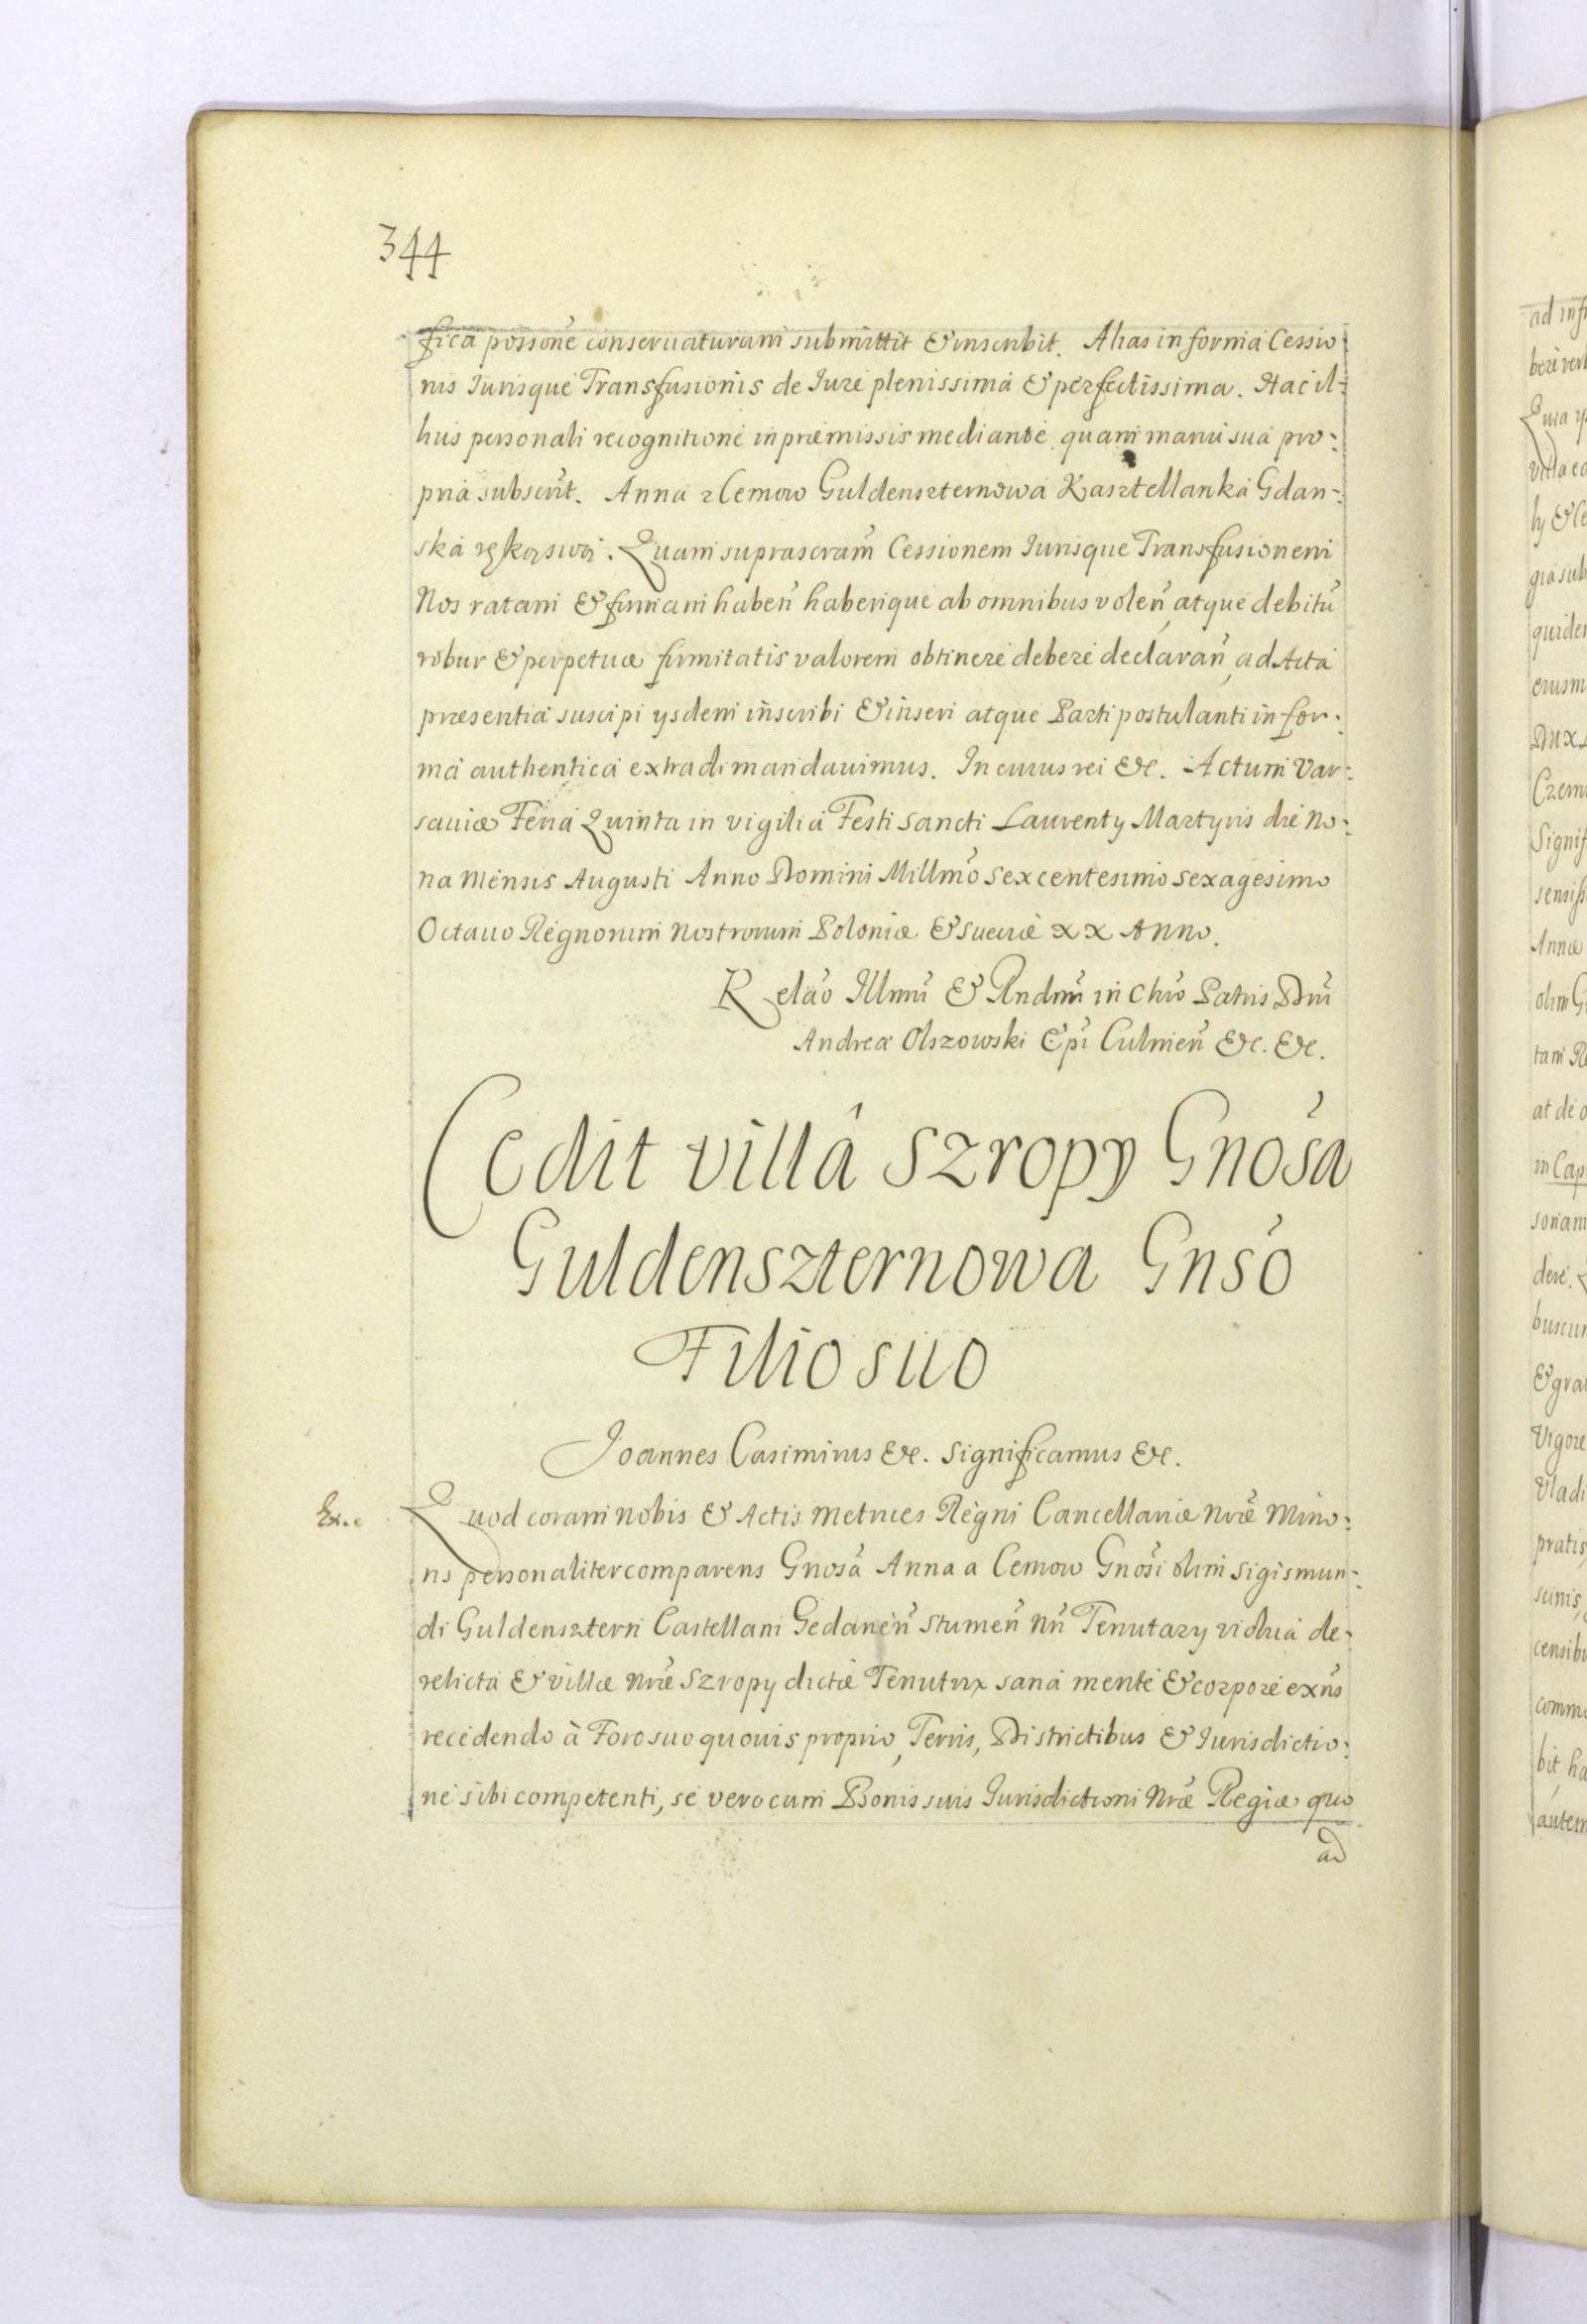 344
fica possoné conseruaturam submittit & inscribit. Alias in forma Cessio
nis Iurisque Transfusionis de Iure plenissima & perfectissima. Hac il-
lius personali recognitione in præmissis mediante quam manu sua pro-
pria subscrit. Anna z Cemow Guldenszternowa Kasztellanka Gdan-
ska ręką swą. Quam suprascram Cessionem Iurisque Transfusionem
Nos ratam & firmam haben haberique ab omnibus volen, atque debitu
robur & perpetuæ firmitatis valorem obtinere debere declaran, ad Acta
præsentia suscipi ysdem inscribi & inseri atque Parti postulanti in for-
ma authentica extradi mandauimus. In cuius rei &c. Actum Var-
sauiæ Feria Quinta in vigilia Festi Sancti Laurenty Martyris die No-
na Mensis Augusti Anno Domini Millmo Sexcentesimo Sexagesimo
Octauo Regnorum Nostrorum Poloniæ & Sueciæ XX Anno.
Relao Illmi & Rndmi in Chro Patris Dni
Andreæ Olszowski Epi Culmen &c. &c.
Cedit villa Szropy Gnosa
Guldenszternowa Gnso
Filio suo
Joannes Casimirus &c. Significamus &c.
Ex.
Quod coram nobis & Actis Metrices Regni Cancellariæ Nræ Mino-
ris personaliter comparens Gnosa Anna a Cemow Gnosi olim Sigismun-
di Guldensztern Castellani Gedanen Stumen Nri Tenutary vidua de-
relicta & villæ Nræ Szropy dictæ Tenutrix sana mente & corpore exns
recedendo à Foro suo quouis proprio, Terris, Districtibus & Iurisdictio-
ne sibi competenti, se vero cum Bonis suis Iurisdictioni Nræ Regiæ quo
ad